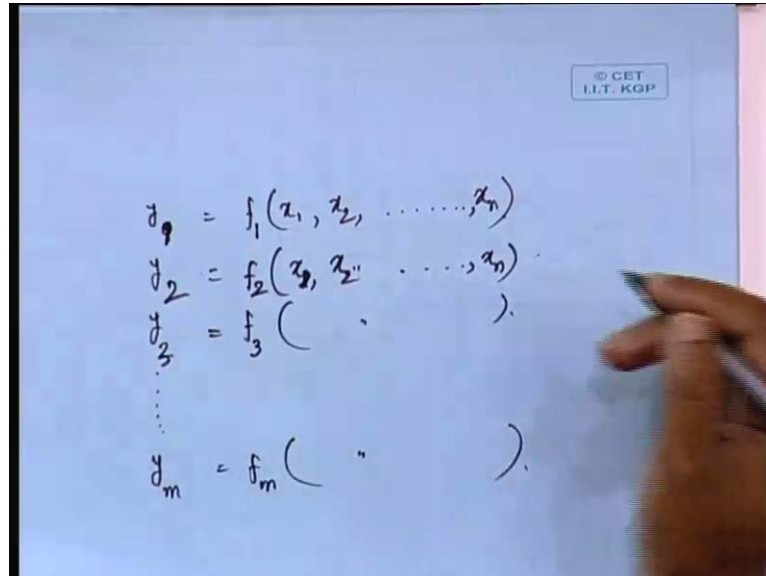 © CET
I.I.T. KGP
y₁ = f₁(x₁, x₂, ......., xₙ)
y₂ = f₂(x₁, x₂, . . . ., xₙ)
y₃ = f₃( " ).
......
yₘ = fₘ( " ).